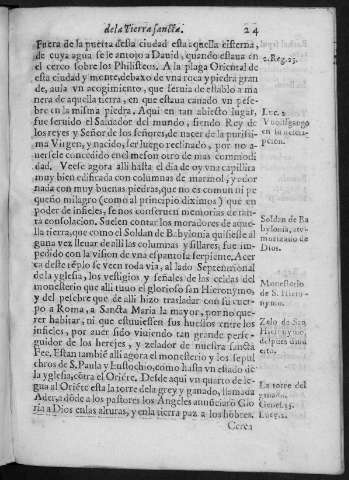 de la Tierra sancta. 24
Fuera de la puerta desta ciudad esta aquella cisterna,
de cuya agua se le antojo a Dauid, quando estaua en
el cerco sobre los Philisteos. A la plaga Oriental de
esta ciudad y monte, debaxo de vna roca y piedra gran
de, aula vn acogimiento, que seruia de establo a ma
nera de aquella tierra, en que estaua cauado vn pese-
bre en la misma piedra. Aqui en tan abiecto lugar,
fue seruido el Saluador del mundo, siendo Rey de
los reyes y Señor de los señores, de nacer de la purissi-
ma Virgen, y nacido, ser luego reclinado, por no a-
uersele concedido en el meson otro de mas commodi
dad. Veese agora alli hasta el dia de oy vna capillita
muy bien edificada con columnas de marmol, y redor
nada con muy buenas piedras, que no es comun ni pe
queño milagro (como al principio diximos) que en
poder de infieles, se nos conseruen memorias de tan-
ta consolacion. Suelen contar los moradores de aque-
lla tierra, que como el Soldan de Babylonia quisiesse al
guna vez lleuar de alli las columnas y sillares, fue im-
pedido con la vision de vna espantosa serpiente. Acer
ca deste tẽplo se veen toda via, al lado Septentrional
de la yglesia, los vestigios y señales de las celdas del
monesterio que alli tuuo el glorioso san Hieronymo,
y del pesebre de alli hizo trasladar con su cuer-
po a Roma, a Sancta Maria la mayor, por no que-
rer habitar, ni que estuuiessen sus huessos entre los
infieles, por auer sido viuiendo tan grande perse-
guidor de los herejes, y zelador de nuestra sancta
Fee. Estan tambiẽ alli agora el monesterio y los sepul
chros de S. Paula y Eustochio, como hasta vn estado de
la yglesia, cõtra el Oriẽte. Desde aqui vn quarto de le-
gua al Oriẽte esta la torre de la grey y ganado, llamada
Ader, a dõde a los pastores los Angeles annũciarõ Glo
ria a Dios en las alturas, y en la tierra paz a los hõbres.
Cerca
2. Reg. 23.
Luc. 2
en su
Soldan de Ba
bylonia, ate-
morizado de
Dios.
Monesterio
de S. Hiero-
nymo.
Zelo de San
Hieronymo,
despues
La torre del
ganado.
Genes. 35.
Luc. 2.